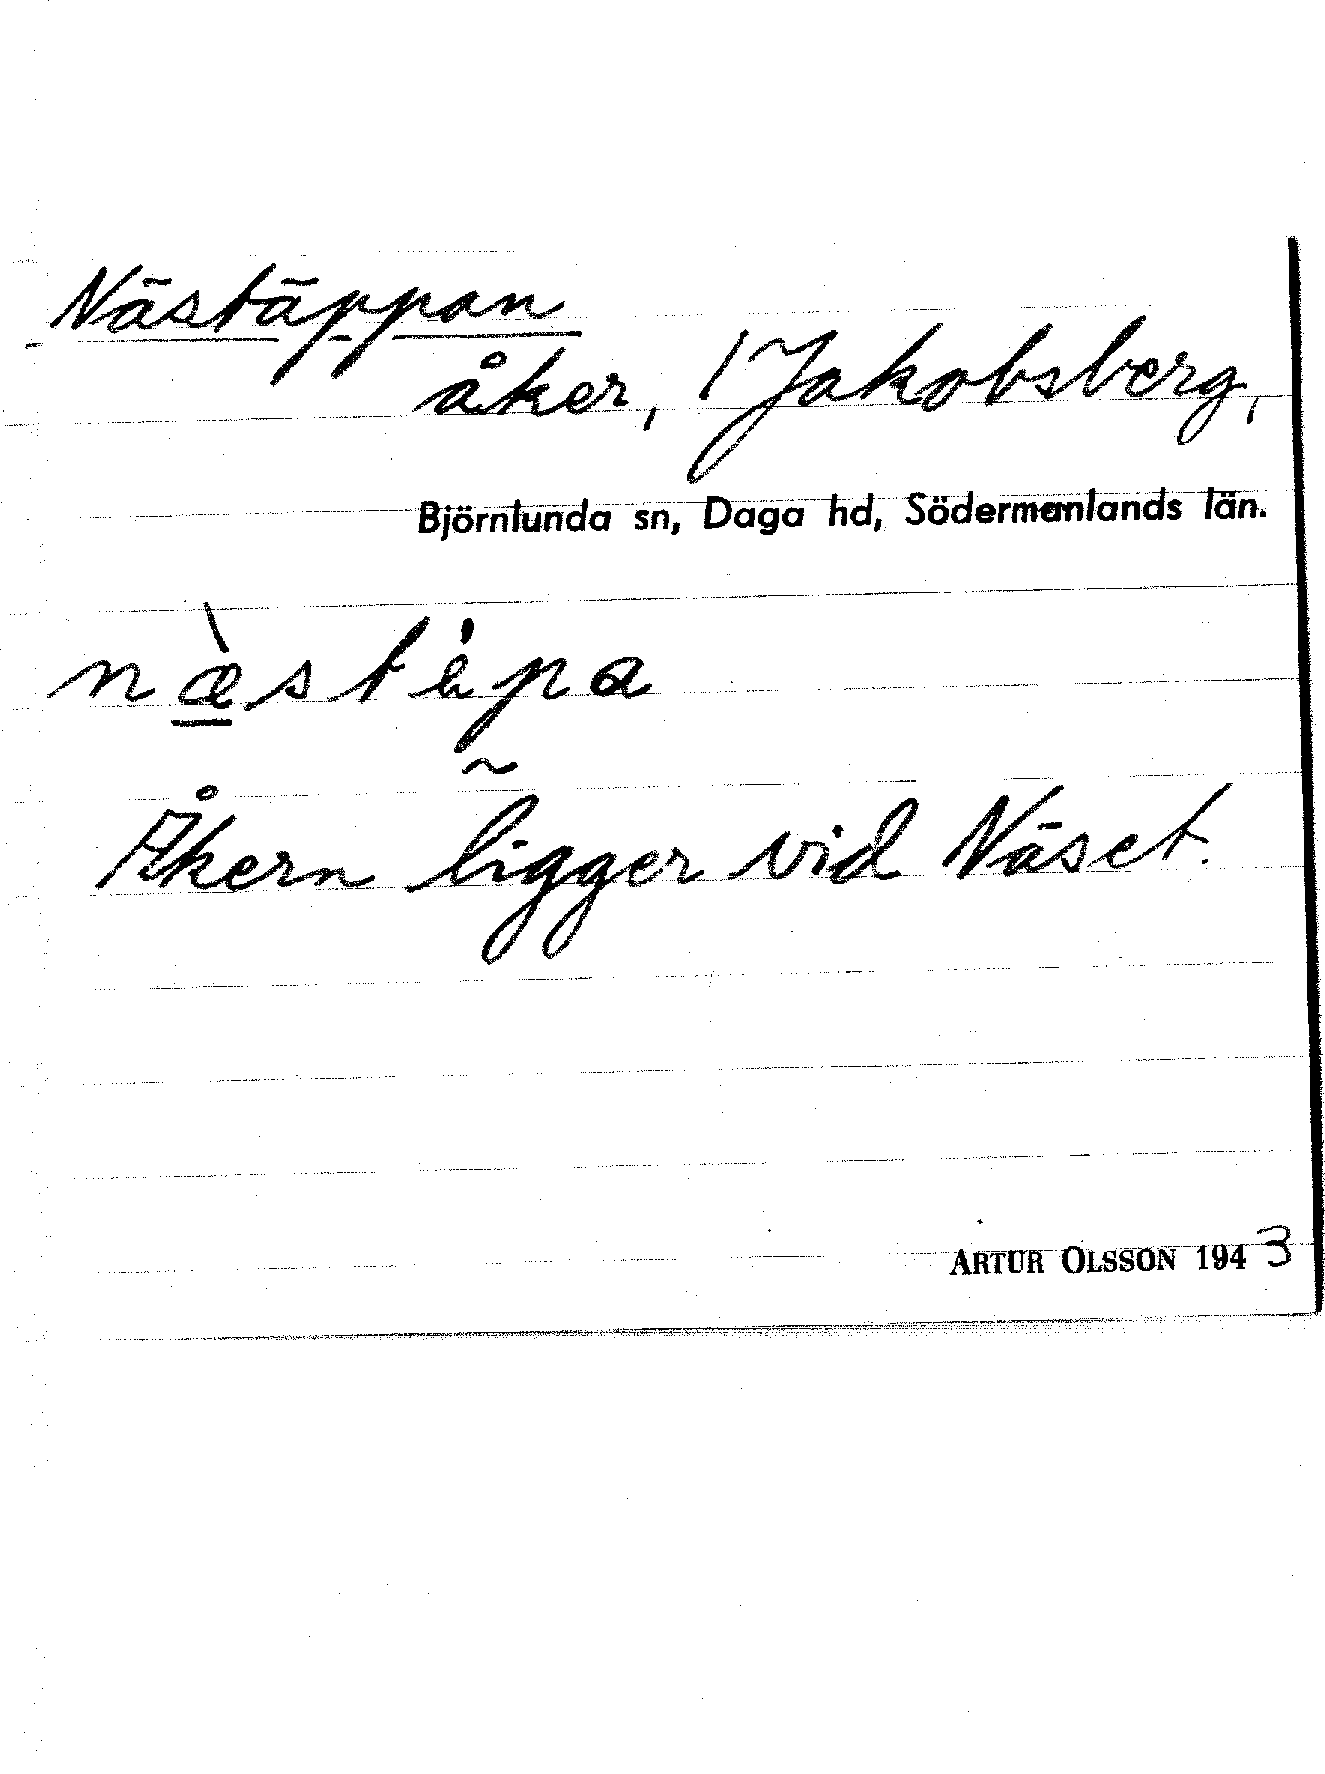 Nästäppan
åker, 1 Jakobsberg,
Björnlunda sn, Daga hd, Södermanlands län.
næ̀stèp̰a
Åkern ligger vid Näset.
ARTUR OLSSON 1943